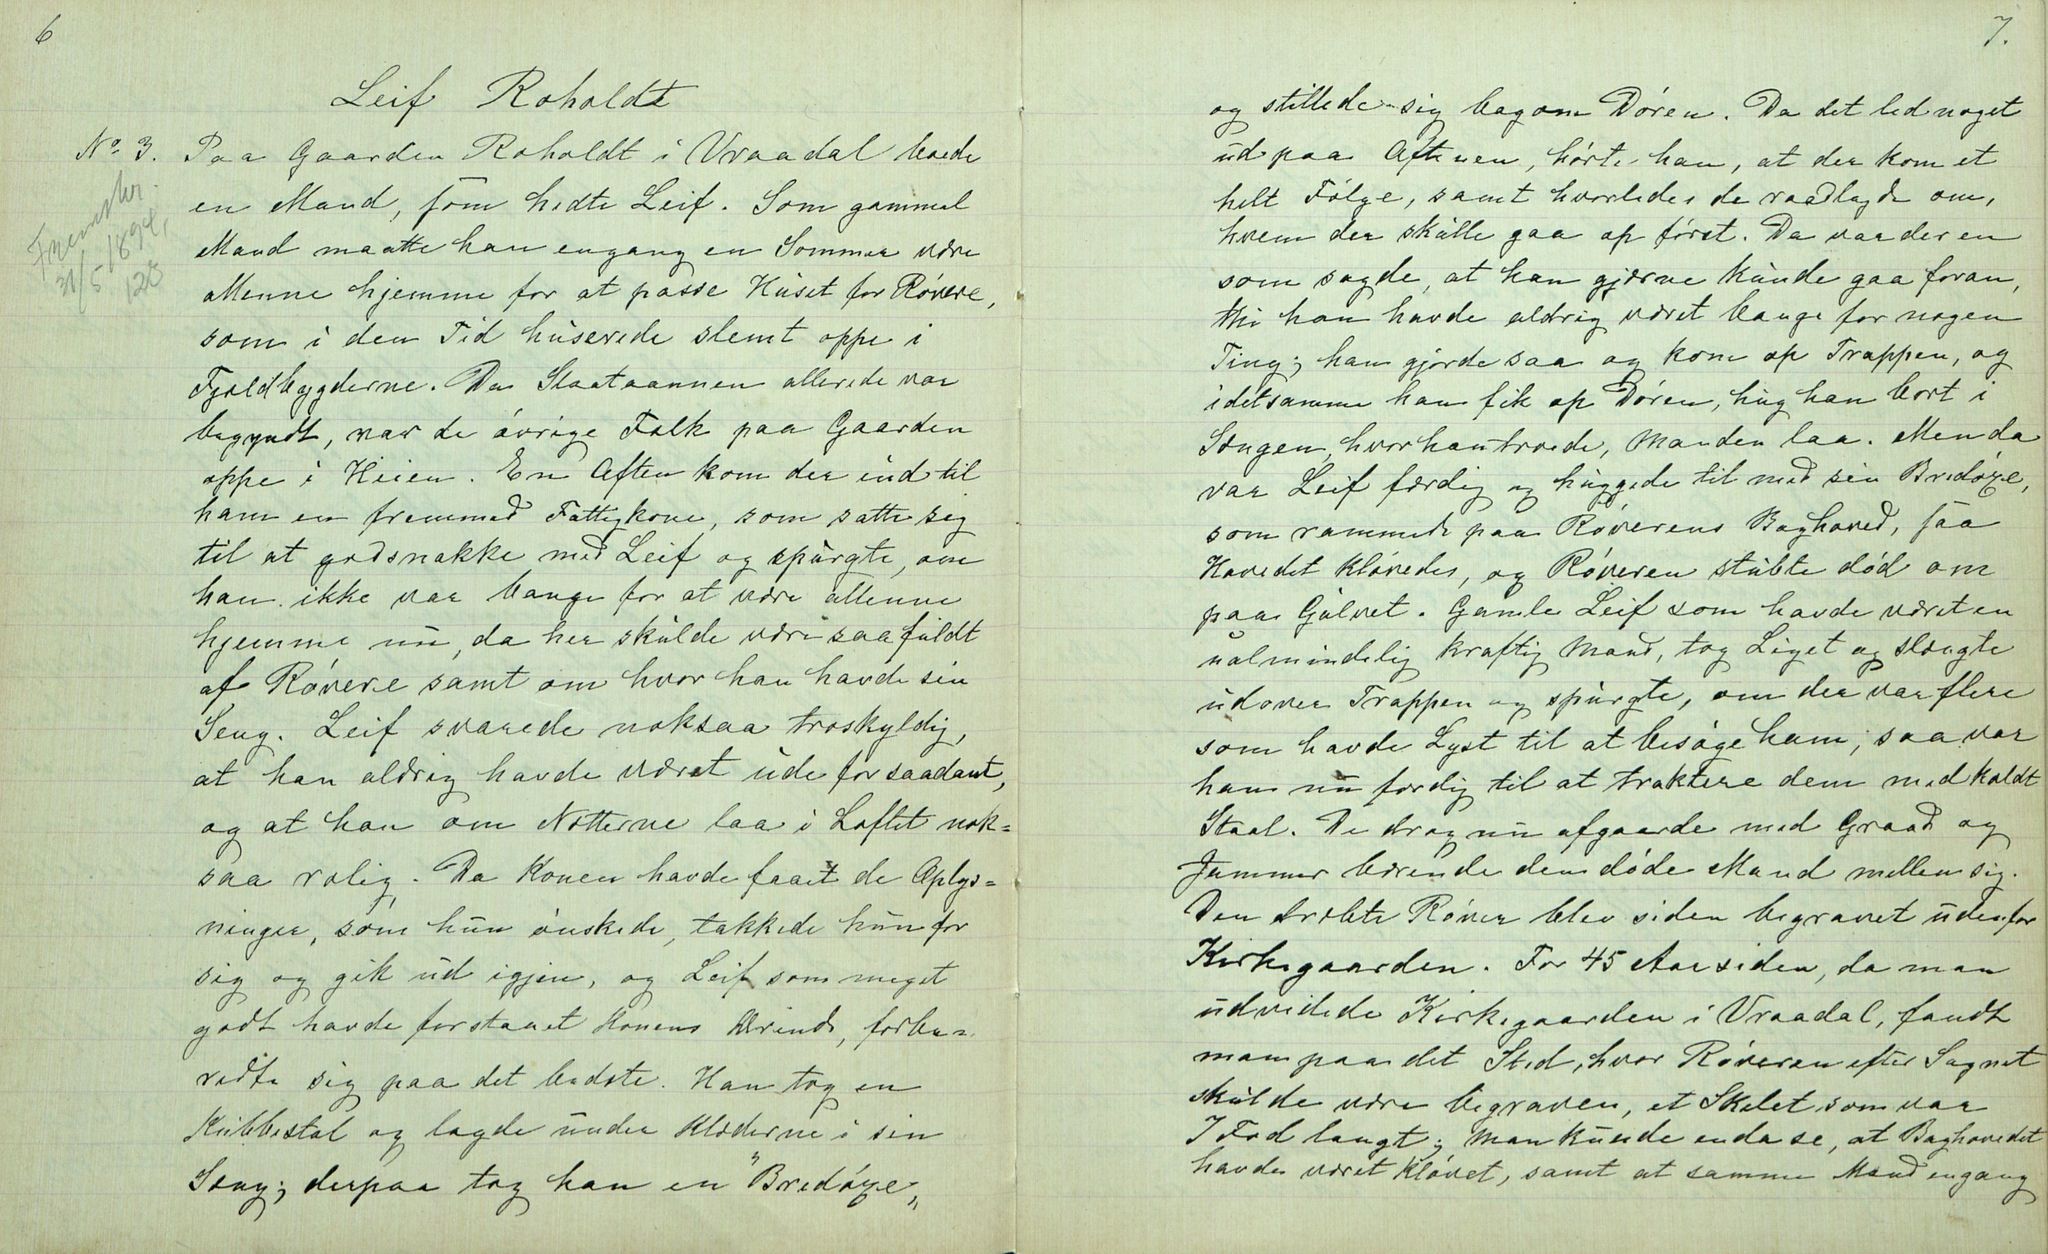 6
Leif Roholdt
No 3. Paa Gaarden Roholdt i Vraadal boede
en Mand, som hedte Leif. Som gammel
Mand maatte han engang en Sommer være
allene hjemme for at passe Huset for Rövere,
som i den Tid huserede slemt oppe i
Fjeldbygderne. Da Slaataannen allerede var
begyndt, var de övrige Folk paa Gaarden
oppe i Heien. En Aften kom der ind til
ham en fremmed Fattigkone, som satte sig
til at godsnakke med Leif og spurgte, om
han ikke var bange for at være allene
hjemme nu, da her skulde være saa fuldt
af Rövere samt om hvor han havde sin
Seng. Leif svarede noksaa troskyldig,
at han aldrig havde været ude for saadant,
og at han om Nætterne laa i Loftet nok=
saa rolig. Da Konen havde faaet de Oplys=
ninger, som hun önskede, takkede hun for
sig og gik ud igjen, og Leif som meget
godt havde forstaaet Konens Ærinde, forbe=
redte sig paa det bedste. Han tog en
Kubbestol og lagde under Klæderne i sin
Seng; derpaa tog han en "Bredöxe„
Fremskr.
21/5 1894,
128
7.
og stillede sig bagom Dören. Da det led noget
ud paa Aftenen, hörte han, at der kom et
helt Fölge, samt hvorledes de raadlagde om,
hvem der skulle gaa op först. Da var der en
som sagde, at han gjærne kunde gaa foran,
thi han havde aldrig været bange for nogen
Ting; han gjorde saa og kom op Trappen, og
idetsamme han fik op Dören, hug han bort i
Sengen, hvor han troede, Manden laa. Men da
var Leif færdig og huggede til med sin Bredöxe,
som rammede paa Röverens Baghoved, saa
Hovedet klövedes, og Röveren stubte död om
paa Gulvet. Gamle Leif som havde været en
ualmindelig kraftig Mand, tog Liget og slængte
udover Trappen og spurgte, om der var flere
som havde Lyst til at besöge ham; saa var
han nu færdig til at traktere dem med koldt
Staal. De drog nu afgaarde med Graad og
Jammer bærende den döde Mand mellem sig.
Den dræbte Röver blev siden begravet udenfor
Kirkegaarden. For 45 Aar siden, da man
udvidede Kirkegaarden i Vraadal, fandt
man paa det Sted, hvor Röveren efter Sagnet
skulde være begraven, et Skelet som var
7 Fod langt; man kunde enda se, at Baghovedet
havde været klövet, samt at samme Mand engang